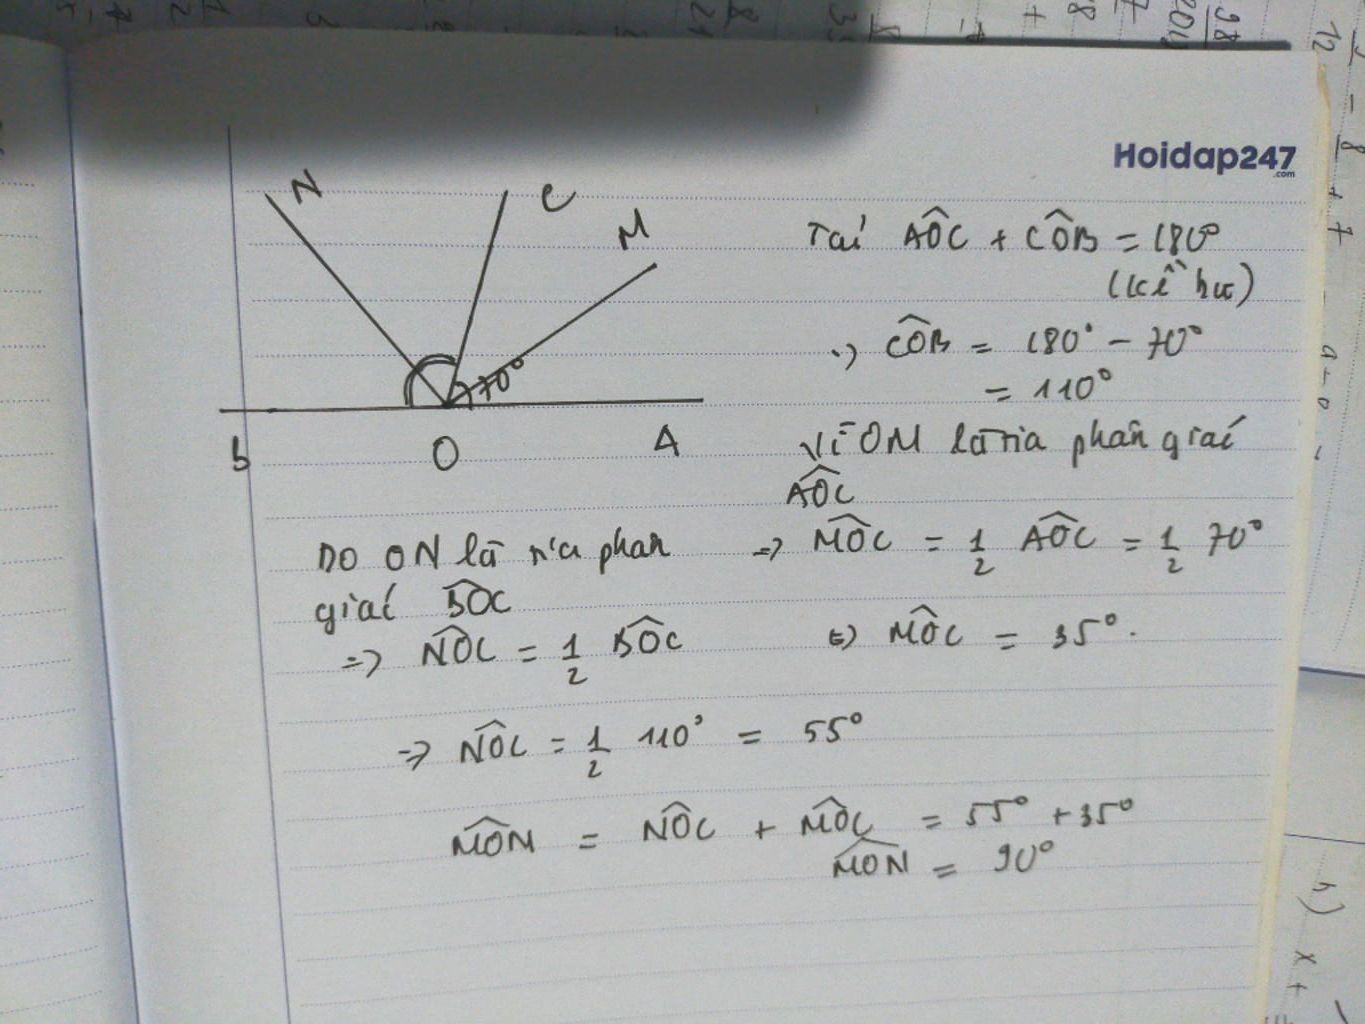 Hoidap247
.com
N
C
M
70°
b
O
A
Taí AÔC + CÔB = 180°
(kề bù)
=> CÔB = 180° - 70°
= 110°
Vì OM là tia phân giaí
AÔC
=> MÔC = 1/2 AÔC = 1/2 70°
<=> MÔC = 35°.
DO ON là tia phan
giaí BÔC
=> NÔC = 1/2 BÔC
=> NÔC = 1/2 110° = 55°
MÔN = NÔC + MÔC = 55° + 35°
MÔN = 90°